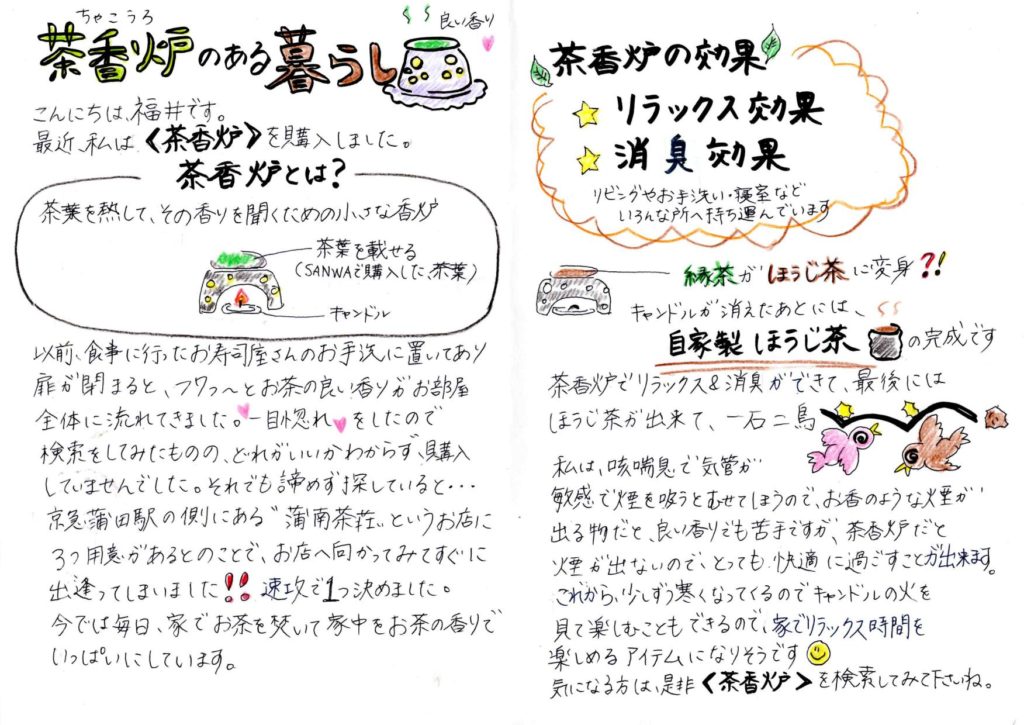 ちゃこうろ
茶香炉のある暮らし
良い香り
こんにちは、福井です。
最近、私は《茶香炉》を購入しました。
茶香炉とは?
茶葉を熱して、その香りを聞くための小さな香炉
茶葉を載せる
(SANWAで購入した、茶葉)
キャンドル
以前、食事に行ったお寿司屋さんのお手洗に置いてあり
扉が閉まると、フワっ〜とお茶の良い香りがお部屋
全体に流れてきました。一目惚れをしたので
検索をしてみたものの、どれがいいかわからず、購入
していませんでした。それでも諦めず探していると・・・
京急蒲田駅の側にある〝蒲南茶荘〟というお店に
3つ用意があるとのことで、お店へ向かってみてすぐに
出逢ってしまいました!! 速攻で1つ決めました。
今では毎日、家でお茶を焚いて家中をお茶の香りで
いっぱいにしています。
茶香炉の効果
リラックス効果
消臭効果
リビングやお手洗い・寝室など
いろんな所へ持ち運んでいます
緑茶がほうじ茶に変身?!
キャンドルが消えたあとには、
自家製ほうじ茶の完成です
茶香炉でリラックス&消臭ができて、最後には
ほうじ茶が出来て、一石二鳥
私は、咳喘息で気管が
敏感で煙を吸うとむせてしまうので、お香のような煙が
出る物だと、良い香りでも苦手ですが、茶香炉だと
煙が出ないので、とっても快適に過ごすことが出来ます。
これから、少しずつ寒くなってくるのでキャンドルの火を
見て楽しむこともできるので、家でリラックス時間を
楽しめるアイテムになりそうです
気になる方は、是非《茶香炉》を検索してみて下さいね。